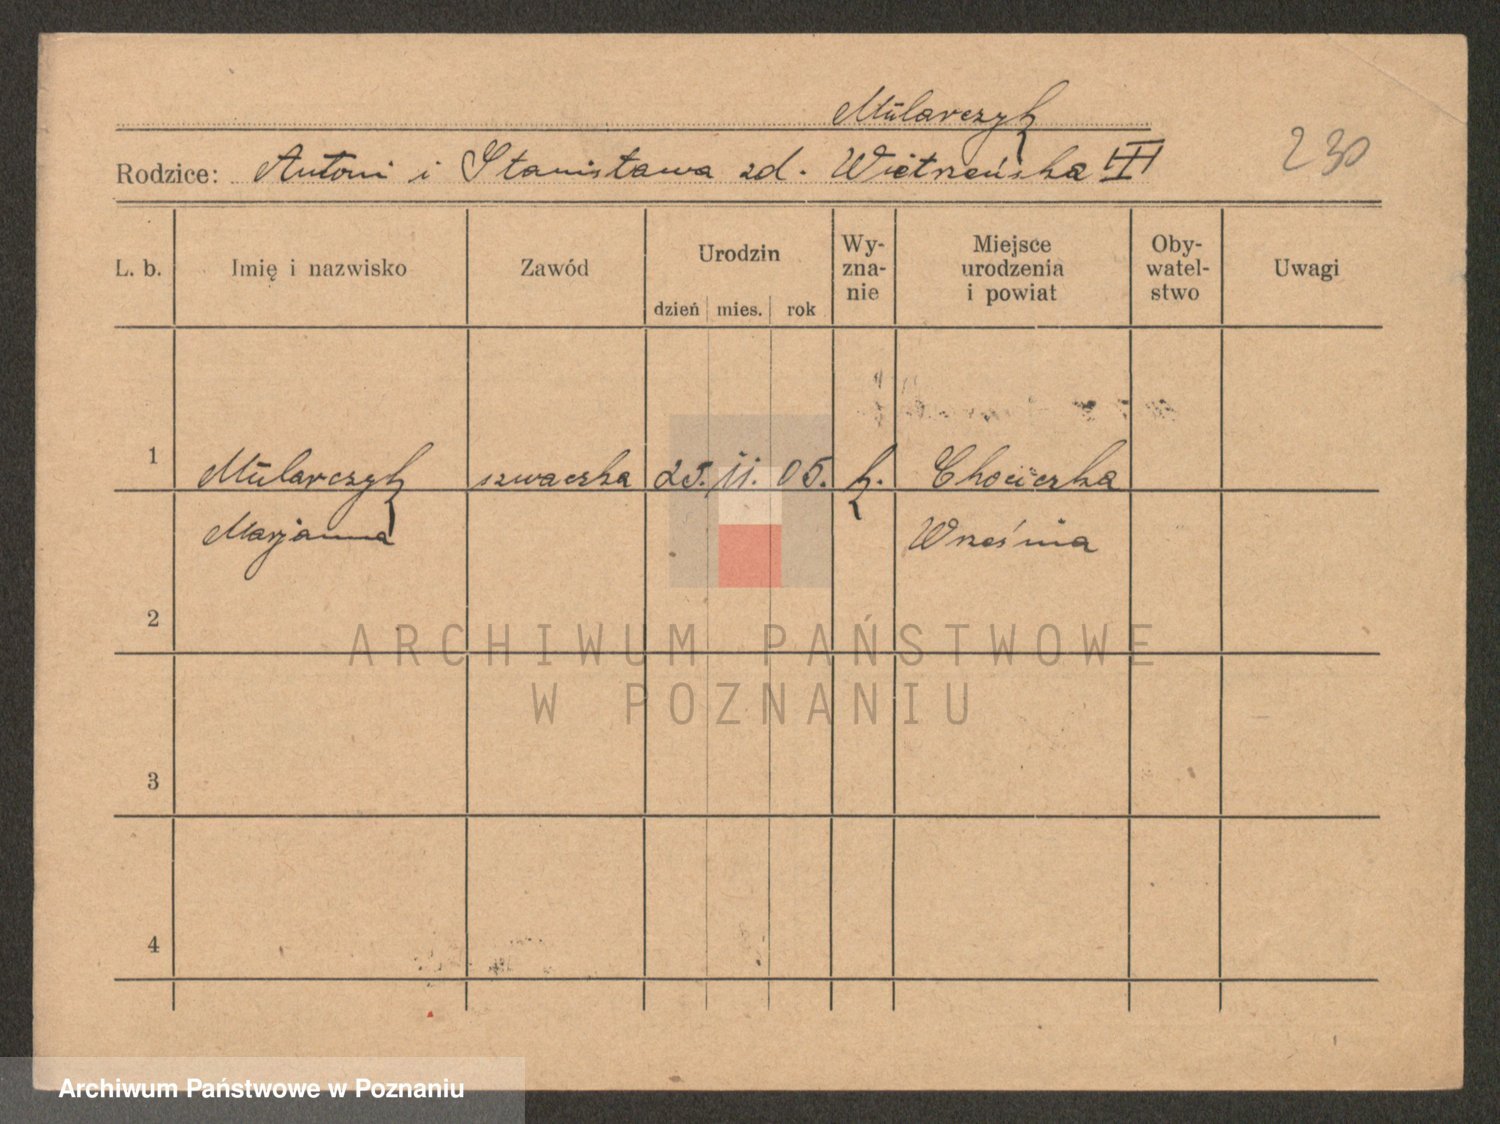 Mularczyk
Rodzice: Antoni i Stanisława zd. Wietrzeńska III
230
L. b. Imię i nazwisko Zawód Urodzin dzień mies. rok Wy-zna-nie Miejsce urodzenia i powiat Oby-watel-stwo Uwagi
1 Mularczyk szwaczka 25. 11. 05. k. Chociczka
Marjanna Września
2
3
4
ARCHIWUM PAŃSTWOWE
W POZNANIU
Archiwum Państwowe w Poznaniu